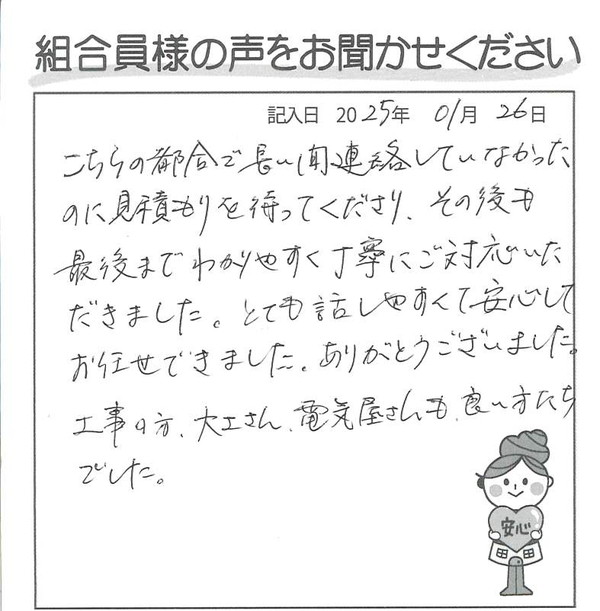 組合員様の声をお聞かせください
記入日 2025年 01月 26日
こちらの都合で長い間連絡していなかった
のに見積もりを待ってくださり、その後も
最後までわかりやすく丁寧にご対応いた
だきました。とても話しやすくて安心して
お任せできました。ありがとうございました。
工事の方、大工さん、電気屋さんも、良い方たち
でした。
安心